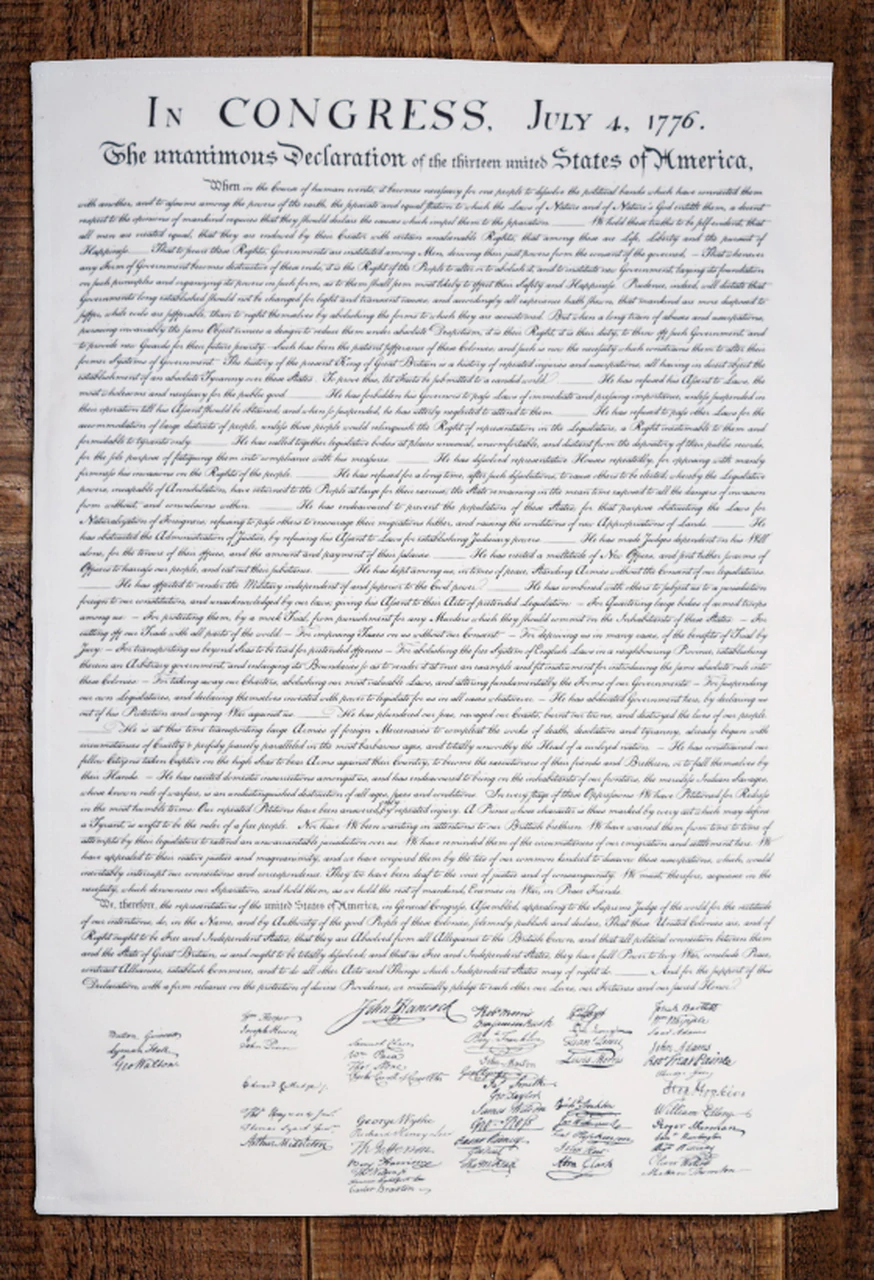 In CONGRESS, July 4, 1776.
The unanimous Declaration of the thirteen united States of America,
When in the Course of human events, it becomes necessary for one people to dissolve the political bands which have connected them
with another, and to assume among the powers of the earth, the separate and equal station to which the Laws of Nature and of Nature's God entitle them, a decent
respect to the opinions of mankind requires that they should declare the causes which impel them to the separation. We hold these truths to be self-evident, that
all men are created equal, that they are endowed by their Creator with certain unalienable Rights, that among these are Life, Liberty and the pursuit of
Happiness. — That to secure these Rights, Governments are instituted among Men, deriving their just powers from the consent of the governed, — That whenever
any Form of Government becomes destructive of these ends, it is the Right of the People to alter or to abolish it, and to institute new Government, laying its foundation
on such principles and organizing its powers in such form, as to them shall seem most likely to effect their Safety and Happiness. Prudence, indeed, will dictate that
Governments long established should not be changed for light and transient causes; and accordingly all experience hath shewn, that mankind are more disposed to
suffer, while evils are sufferable, than to right themselves by abolishing the forms to which they are accustomed. But when a long train of abuses and usurpations,
pursuing invariably the same Object evinces a design to reduce them under absolute Despotism, it is their Right, it is their duty, to throw off such Government, and
to provide new Guards for their future security. — Such has been the patient sufferance of these Colonies; and such is now the necessity which constrains them to alter their
former Systems of Government. The history of the present King of Great Britain is a history of repeated injuries and usurpations, all having in direct object the
establishment of an absolute Tyranny over these States. To prove this, let Facts be submitted to a candid world. He has refused his Assent to Laws, the
most wholesome and necessary for the public good. He has forbidden his Governors to pass Laws of immediate and pressing importance, unless suspended in
their operation till his Assent should be obtained; and when so suspended, he has utterly neglected to attend to them. He has refused to pass other Laws for the
accommodation of large districts of people, unless those people would relinquish the Right of representation in the Legislature, a Right inestimable to them and
formidable to tyrants only. He has called together legislative bodies at places unusual, uncomfortable, and distant from the depository of their public records,
for the sole purpose of fatiguing them into compliance with his measures. He has dissolved representative Houses repeatedly, for opposing with manly
firmness his invasions on the Rights of the people. He has refused for a long time, after such dissolutions, to cause others to be elected; whereby the Legislative
powers, incapable of Annihilation, have returned to the People at large for their exercise; the State remaining in the mean time exposed to all the dangers of invasion
from without, and convulsions within. He has endeavoured to prevent the population of these States; for that purpose obstructing the Laws for
Naturalization of Foreigners; refusing to pass others to encourage their migrations hither, and raising the conditions of new Appropriations of Lands. He
has obstructed the Administration of Justice, by refusing his Assent to Laws for establishing Judiciary powers. He has made Judges dependent on his Will
alone, for the tenure of their offices, and the amount and payment of their salaries. He has erected a multitude of New Offices, and sent hither swarms of
Officers to harrass our people, and eat out their substance. He has kept among us, in times of peace, Standing Armies without the Consent of our legislatures.
He has affected to render the Military independent of and superior to the Civil power. He has combined with others to subject us to a jurisdiction
foreign to our constitution, and unacknowledged by our laws; giving his Assent to their Acts of pretended Legislation: — For Quartering large bodies of armed troops
among us: — For protecting them, by a mock Trial, from punishment for any Murders which they should commit on the Inhabitants of these States: — For
cutting off our Trade with all parts of the world: — For imposing Taxes on us without our Consent: — For depriving us in many cases, of the benefits of Trial by
Jury: — For transporting us beyond Seas to be tried for pretended offences — For abolishing the free System of English Laws in a neighbouring Province, establishing
therein an Arbitrary government, and enlarging its Boundaries so as to render it at once an example and fit instrument for introducing the same absolute rule into
these Colonies: — For taking away our Charters, abolishing our most valuable Laws, and altering fundamentally the Forms of our Governments: — For suspending
our own Legislatures, and declaring themselves invested with power to legislate for us in all cases whatsoever. — He has abdicated Government here, by declaring us
out of his Protection and waging War against us. He has plundered our seas, ravaged our Coasts, burnt our towns, and destroyed the lives of our people.
He is at this time transporting large Armies of foreign Mercenaries to compleat the works of death, desolation and tyranny, already begun with
circumstances of Cruelty & perfidy scarcely paralleled in the most barbarous ages, and totally unworthy the Head of a civilized nation. — He has constrained our
fellow Citizens taken Captive on the high Seas to bear Arms against their Country, to become the executioners of their friends and Brethren, or to fall themselves by
their Hands. — He has excited domestic insurrections amongst us, and has endeavoured to bring on the inhabitants of our frontiers, the merciless Indian Savages,
whose known rule of warfare, is an undistinguished destruction of all ages, sexes and conditions. In every stage of these Oppressions We have Petitioned for Redress
in the most humble terms: Our repeated Petitions have been answered only by repeated injury. A Prince whose character is thus marked by every act which may define
a Tyrant, is unfit to be the ruler of a free people. Nor have We been wanting in attentions to our Brittish brethren. We have warned them from time to time of
attempts by their legislature to extend an unwarrantable jurisdiction over us. We have reminded them of the circumstances of our emigration and settlement here. We
have appealed to their native justice and magnanimity, and we have conjured them by the ties of our common kindred to disavow these usurpations, which, would
inevitably interrupt our connections and correspondence. They too have been deaf to the voice of justice and of consanguinity. We must, therefore, acquiesce in the
necessity, which denounces our Separation, and hold them, as we hold the rest of mankind, Enemies in War, in Peace Friends.
We, therefore, the representatives of the united States of America, in General Congress, Assembled, appealing to the Supreme Judge of the world for the rectitude
of our intentions, do, in the Name, and by Authority of the good People of these Colonies, solemnly publish and declare, That these United Colonies are, and of
Right ought to be Free and Independent States; that they are Absolved from all Allegiance to the British Crown, and that all political connection between them
and the State of Great Britain, is and ought to be totally dissolved; and that as Free and Independent States, they have full Power to levy War, conclude Peace,
contract Alliances, establish Commerce, and to do all other Acts and Things which Independent States may of right do. And for the support of this
Declaration, with a firm reliance on the protection of divine Providence, we mutually pledge to each other our Lives, our Fortunes and our sacred Honor.
Button Gwinnett
Lyman Hall
Geo Walton
Wm Hooper
Joseph Hewes
John Penn
Edward Rutledge
Thos Heyward Junr
Thomas Lynch Junr
Arthur Middleton
John Hancock
Samuel Chase
Wm Paca
Thos Stone
Charles Carroll of Carrollton
George Wythe
Richard Henry Lee
Th Jefferson
Benj Harrison
Thos Nelson jr
Francis Lightfoot Lee
Carter Braxton
Robt Morris
Benjamin Rush
Benj Franklin
John Morton
Geo Clymer
Jas Smith
Geo Taylor
James Wilson
Geo Ross
Caesar Rodney
Geo Read
Tho M:Kean
Wm Floyd
Phil Livingston
Frans Lewis
Lewis Morris
Richd Stockton
Jno Witherspoon
Fras Hopkinson
John Hart
Abra Clark
Josiah Bartlett
Wm Whipple
Saml Adams
John Adams
Robt Treat Paine
Elbridge Gerry
Step Hopkins
William Ellery
Roger Sherman
Saml Huntington
Wm Williams
Oliver Wolcott
Matthew Thornton